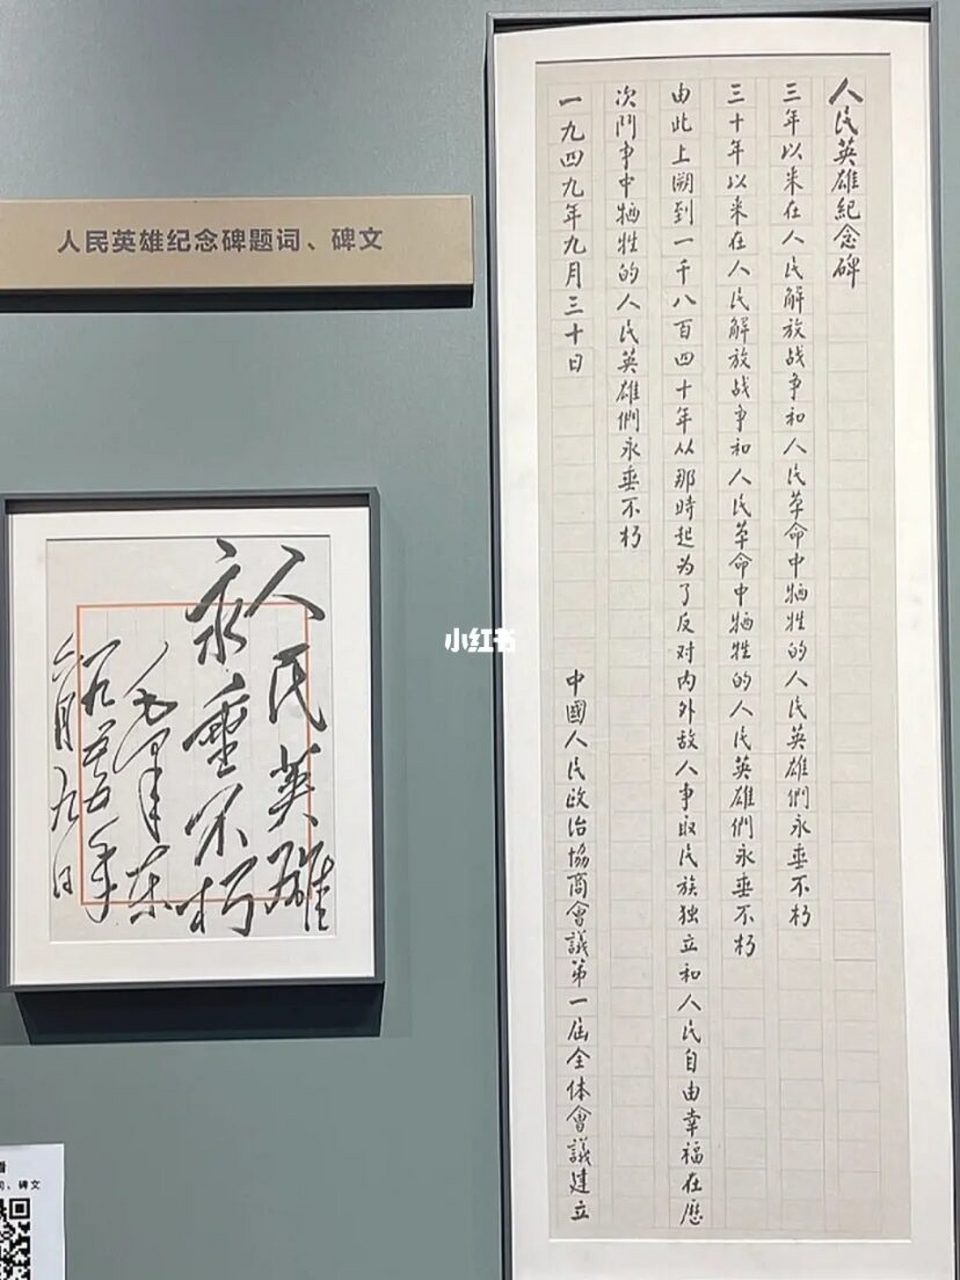 人民英雄纪念碑题词、碑文
人民英雄紀念碑
三年以来在人民解放战争和人民革命中牺牲的人民英雄們永垂不朽
三十年以来在人民解放战争和人民革命中牺牲的人民英雄們永垂不朽
由此上溯到一千八百四十年从那時起为了反对内外敌人争取民族独立和人民自由幸福在歷
次鬥争中牺牲的人民英雄們永垂不朽
一九四九年九月三十日 中國人民政治協商會議第一届全体會議建立
人民英雄
永垂不朽
毛泽东
一九五五年
六月九日
小红书
词、碑文